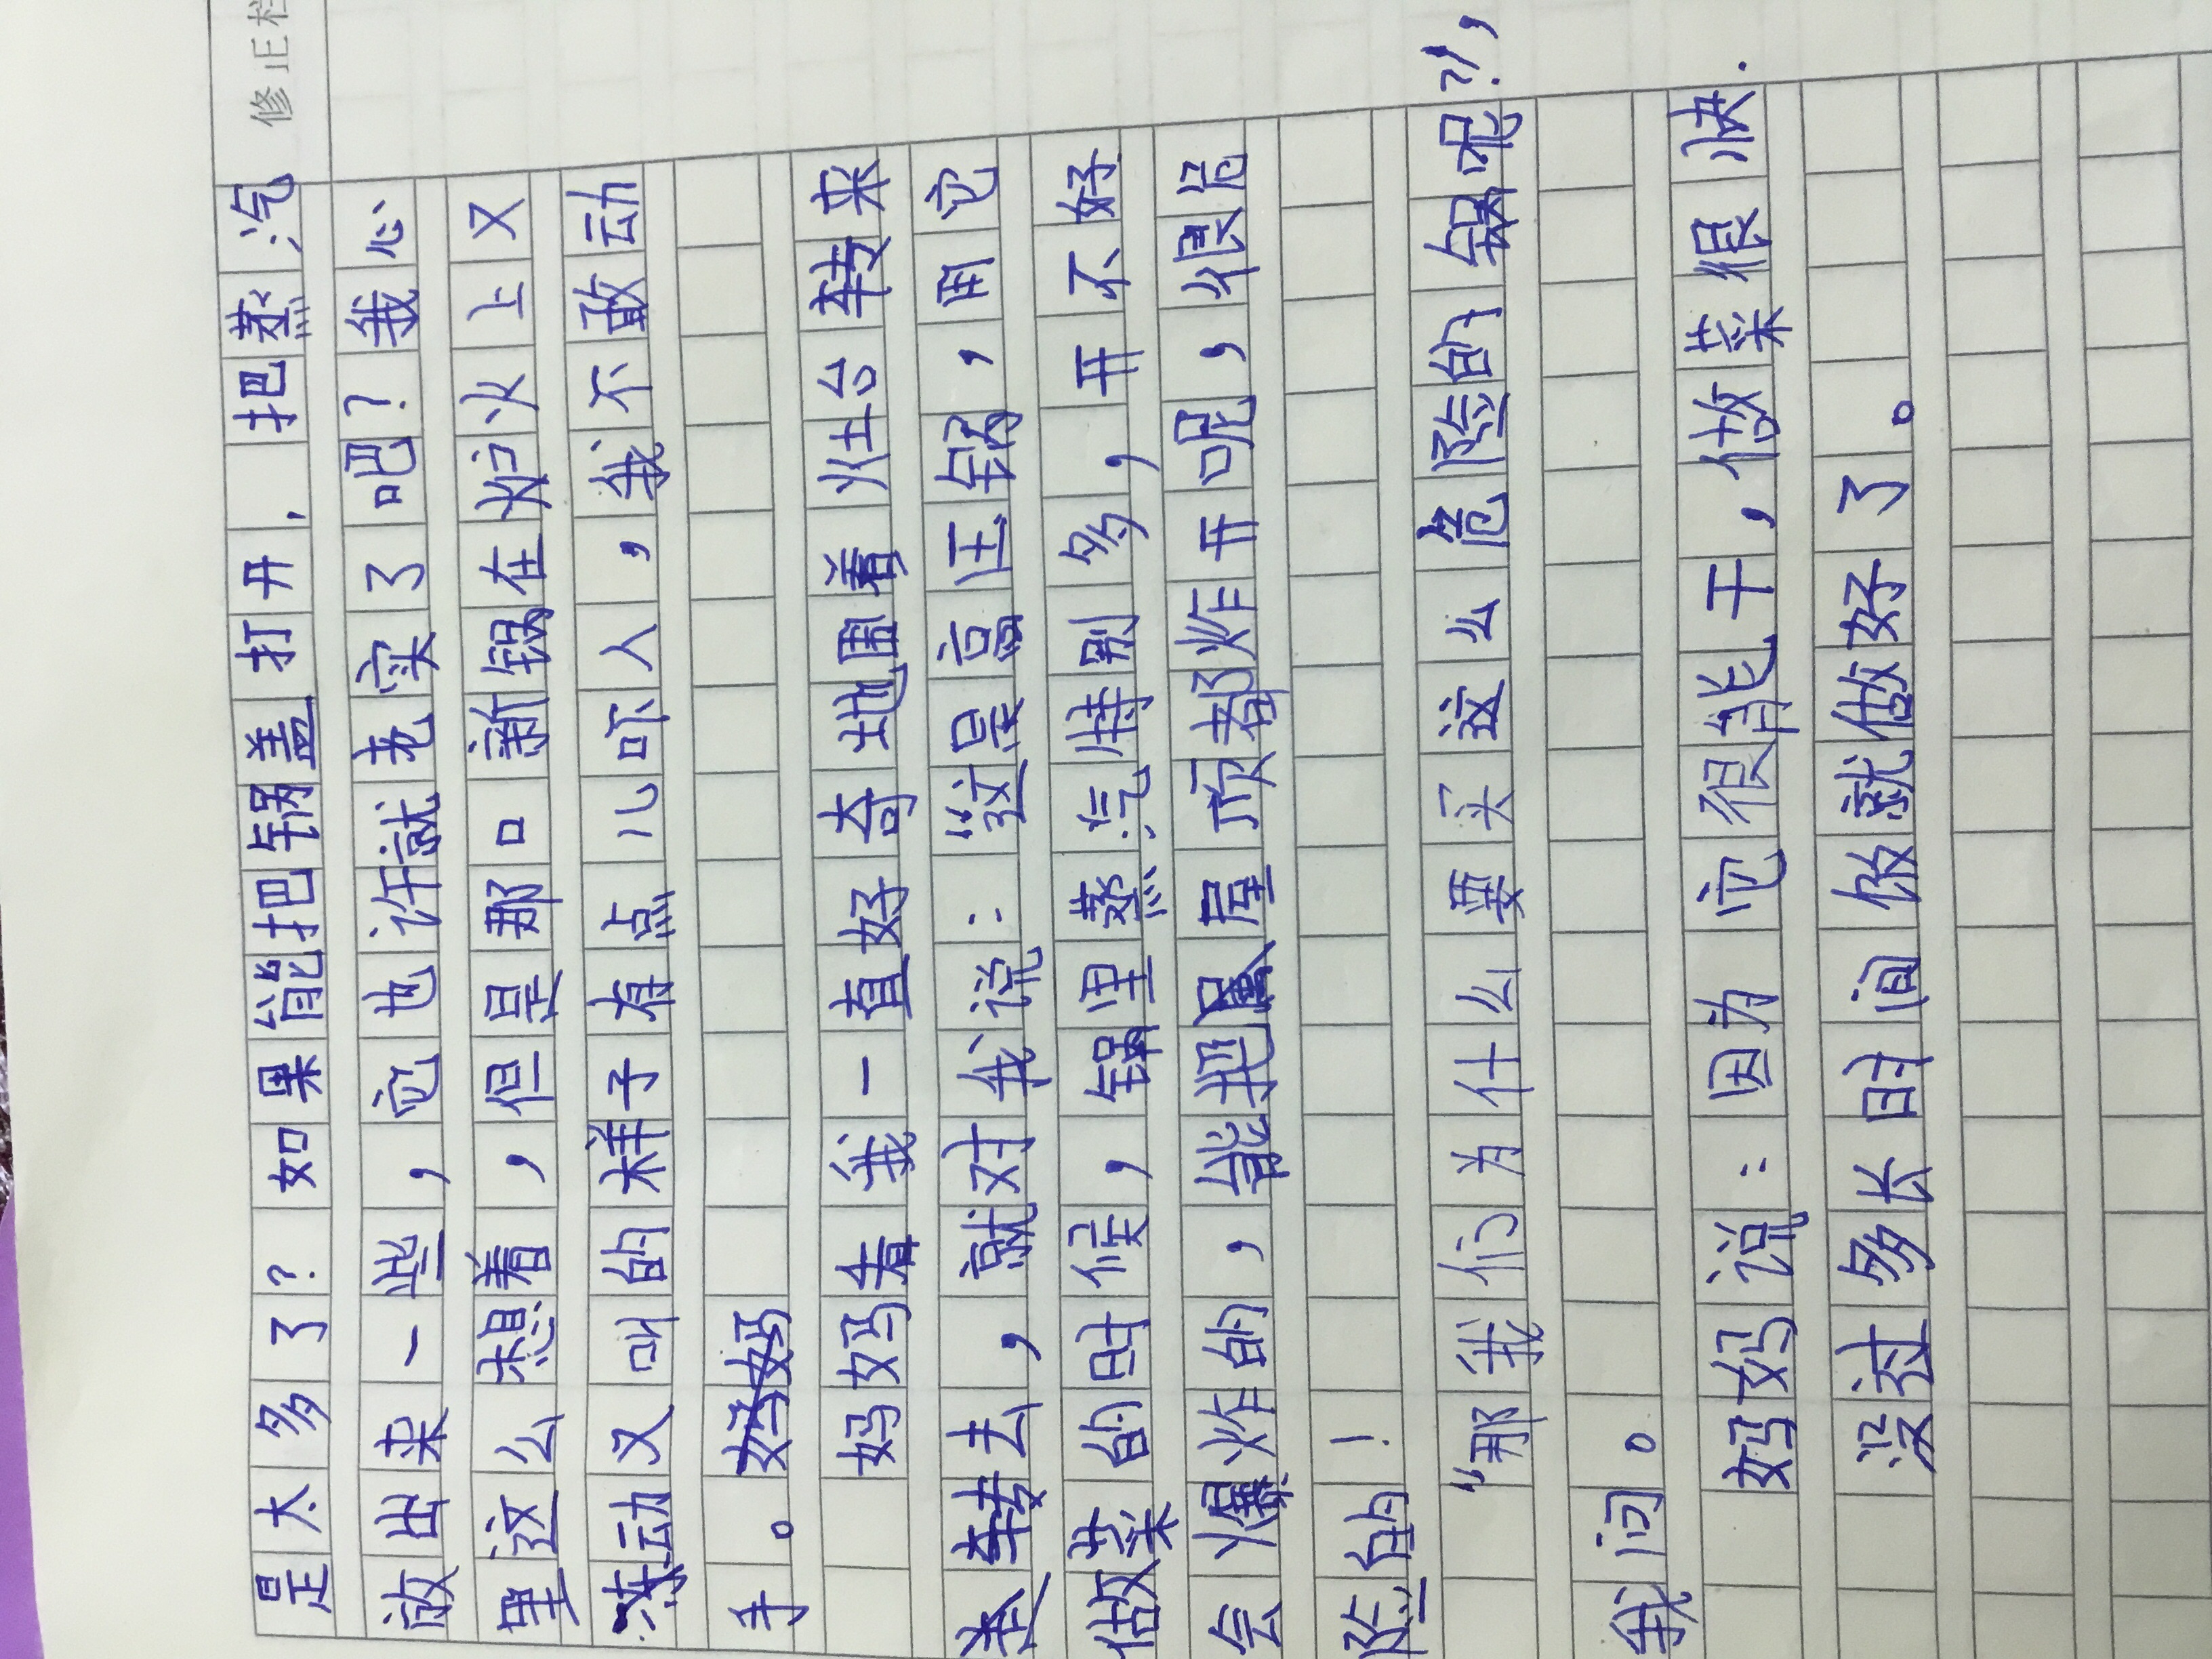 修正栏
是太多了？如果能把锅盖打开，把蒸汽
放出来一些，它也许就老实了吧？我心
里这么想着，但是那口新锅在炉火上又
动又叫的样子有点儿吓人，我不敢动
手。
妈妈看我一直好奇地围着灶台转来
转去，就对我说：“这是高压锅，用它
做菜的时候，锅里蒸汽特别多，弄不好
会爆炸的，能把屋顶都炸开呢，很危
险的！
“那我们为什么要买这么危险的锅呢？”，
我问。
妈妈说：因为它很能干，做菜很快．
没过多长时间饭就做好了。